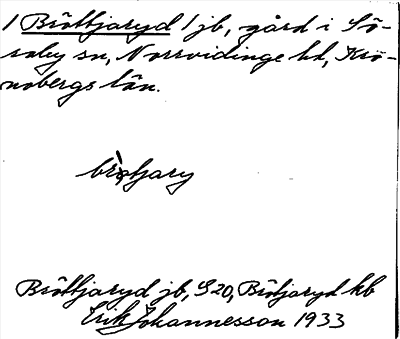 1 Bröttjaryd 1 jb, gård i Sö-
raby sn, Norrvidinge hd, Kro-
nobergs län.
brötjary
Bröttjaryd jb, S20, Brötjaryd kb
Erik Johannesson 1933